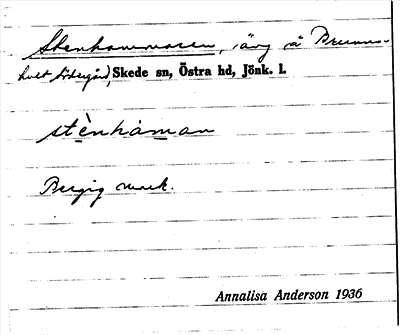 Stenhammaren, äng å Brunns-
hult Södergård, Skede sn, Östra hd, Jönk. l.
stènhàman
Bergig mark.
Annalisa Anderson 1936